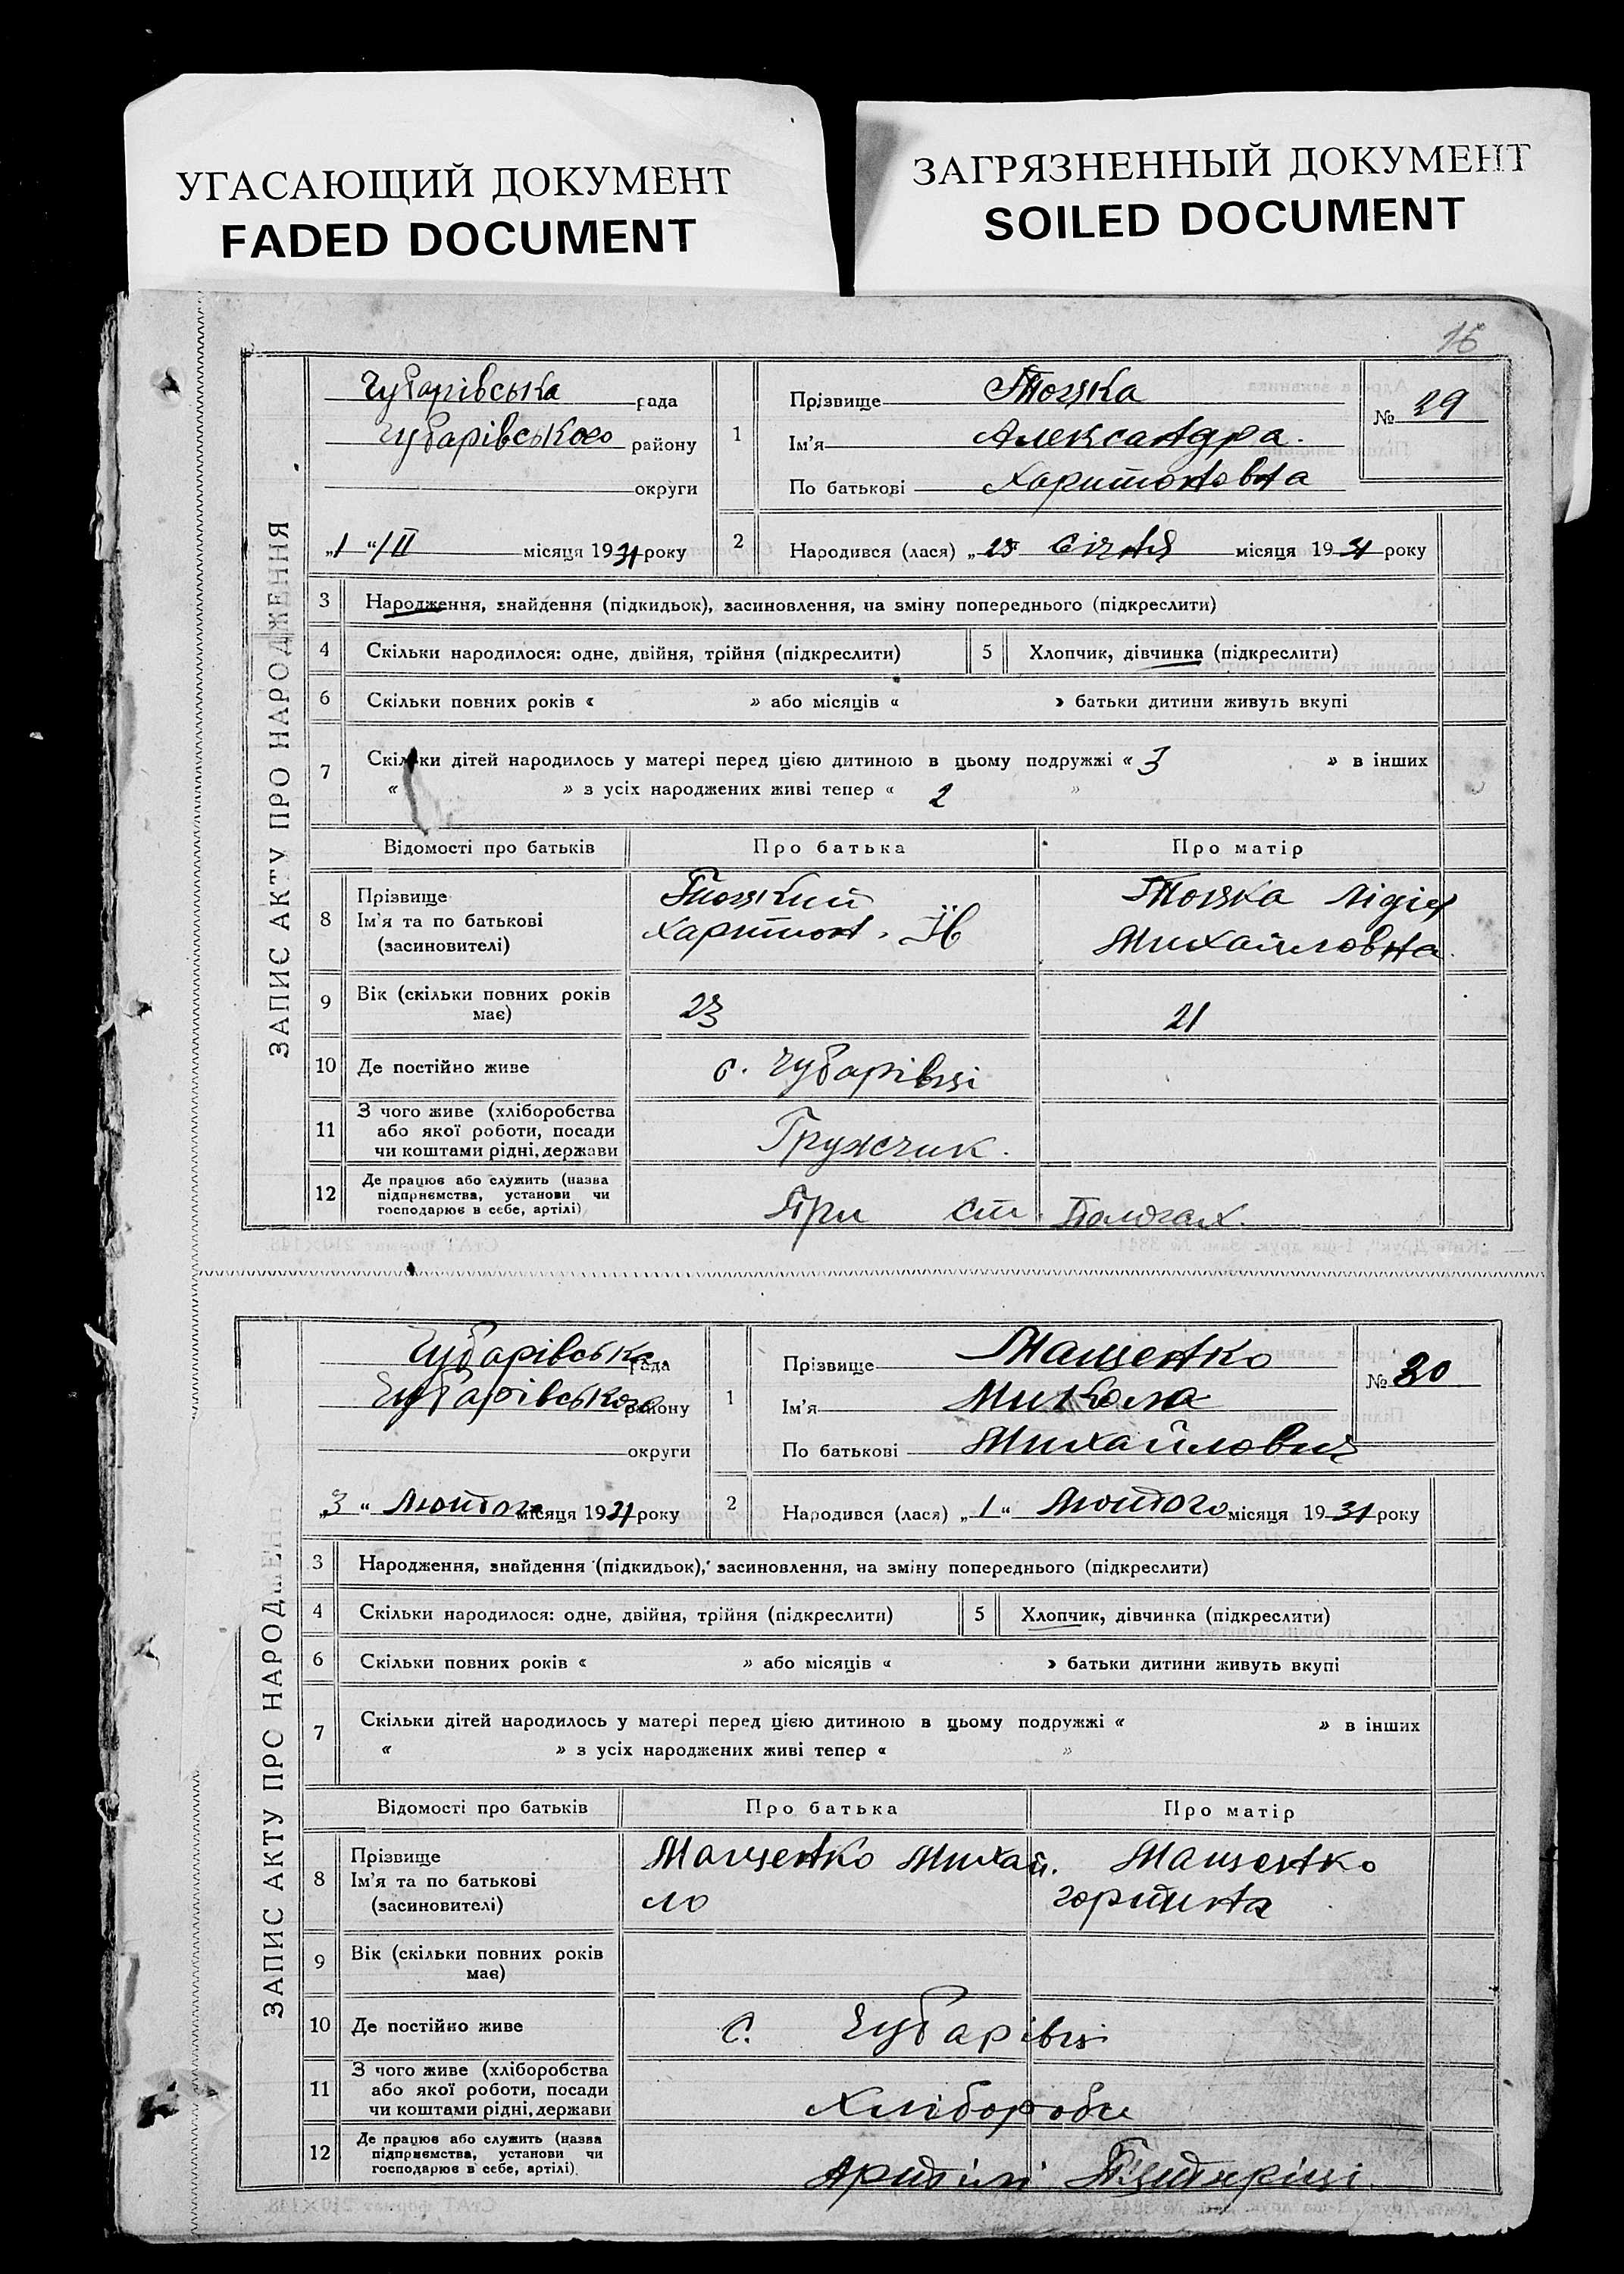 УГАСАЮЩИЙ ДОКУМЕНТ
FADED DOCUMENT
ЗАГРЯЗНЕННЫЙ ДОКУМЕНТ
SOILED DOCUMENT
16
ЗАПИС АКТУ ПРО НАРОДЖЕННЯ
Чубарівська рада
Чубарівського району
округи
„1“/II місяця 1931 року
1
Прізвище
Ім'я Александра.
По батькові Харитоновна
№ 29
2
Народився (лася) „25 Січня місяця 1931 року
3 Народження, знайдення (підкидьок), засиновлення, на зміну попереднього (підкреслити)
4 Скільки народилося: одне, двійня, трійня (підкреслити)
5 Хлопчик, дівчинка (підкреслити)
6 Скільки повних років « » або місяців « » батьки дитини живуть вкупі
7 Скільки дітей народилось у матері перед цією дитиною в цьому подружжі « 3 » в інших
« » з усіх народжених живі тепер « 2 »
Відомості про батьків Про батька Про матір
8 Прізвище
Ім'я та по батькові
(засиновителі)
Харитон.
Лідія
Михайловна
9 Вік (скільки повних років
має)
23 21
10 Де постійно живе с. Чубарівці
11 З чого живе (хліборобства
або якої роботи, посади
чи коштами рідні, держави
Гружчик.
12 Де працює або служить (назва
підприємства, установи чи
господарює в себе, артілі)
При ст. Пологах.
„Київ-Друк", 1-ша друк. Зам. № 3844.
СтАТ формат 210×148.
ЗАПИС АКТУ ПРО НАРОДЖЕНН
Чубарівська рада
Чубарівського району
округи
„3“ Лютого місяця 1931 року
1
Прізвище Мащенко
Ім'я Микола
По батькові Михайлович
№ 30
2
Народився (лася) „1“ Лютого місяця 1931 року
3 Народження, знайдення (підкидьок), засиновлення, на зміну попереднього (підкреслити)
4 Скільки народилося: одне, двійня, трійня (підкреслити)
5 Хлопчик, дівчинка (підкреслити)
6 Скільки повних років « » або місяців « » батьки дитини живуть вкупі
7 Скільки дітей народилось у матері перед цією дитиною в цьому подружжі « » в інших
« » з усіх народжених живі тепер « »
Відомості про батьків Про батька Про матір
8 Прізвище
Ім'я та по батькові
(засиновителі)
Мащенко Михай.
ло
Мащенко
горпина
9 Вік (скільки повних років
має)
10 Де постійно живе с. Чубарівці
11 З чого живе (хліборобства
або якої роботи, посади
чи коштами рідні, держави
Хлібороби
12 Де працює або служить (назва
підприємства, установи чи
господарює в себе, артілі)
Артілі